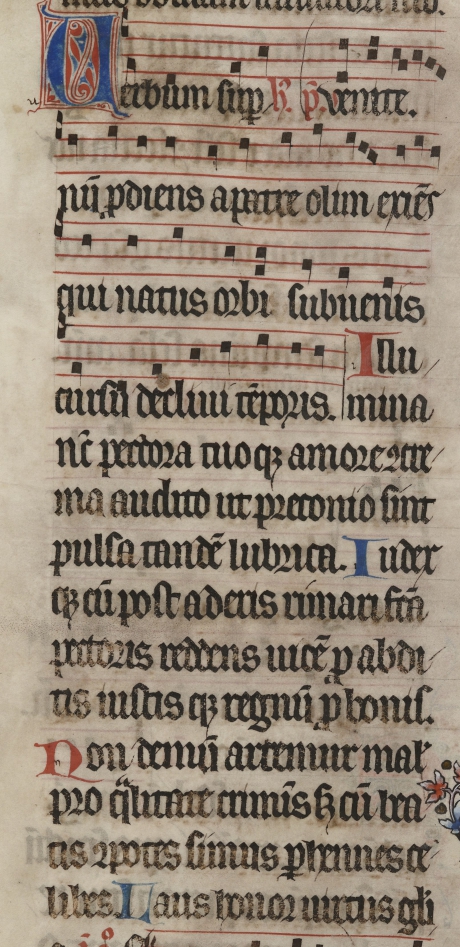 Uerbum sup h̃. p̃. venite.
nũ ꝓdiens a patre olim exiẽs
qui natus orbi subuenis
cursũ decliui tẽporis. Illu
mina
nc̃ pectora tuoqꝫ amore cre
ma audito ut preconio sint
pulsa tandẽ lubrica. Iudex
qꝫ cũ post aderis rimari fc̃a
pectoris reddens uicẽ ꝓ abdi
tis iustisqꝫ regnũ ꝓ bonis.
Non demũ artemur mal'
pro q̃litate criminis sꝫ cũ bea
tis ꝯpotes simus ꝑhennes ce
libes. Laus honor uirtus gl̃i